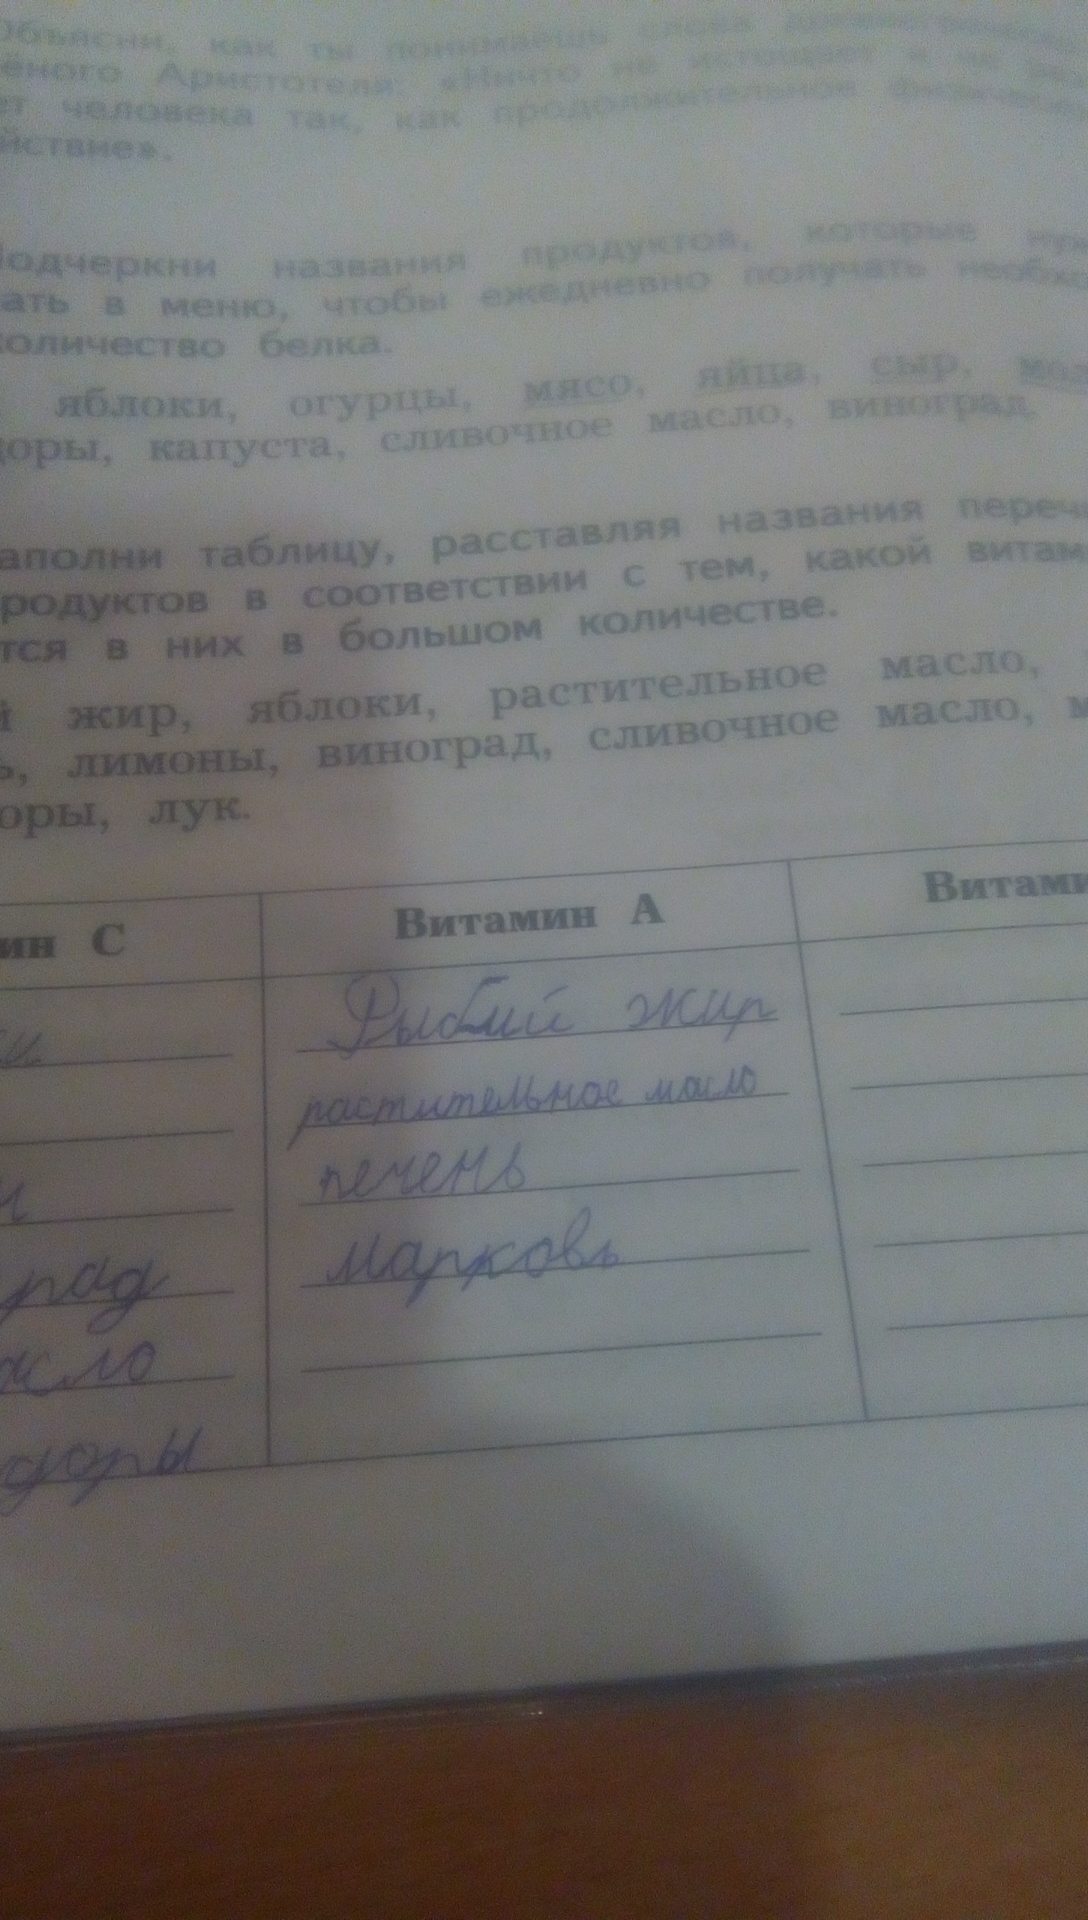 Объясни, как ты понимаешь слова
ёного Аристотеля: «Ничто не истощает и не
ет человека так, как продолжительное физическое
йствие».
Подчеркни названия продуктов, которые
ать в меню, чтобы ежедневно получать необхо
количество белка.
яблоки, огурцы, мясо, яйца, сыр, мол
доры, капуста, сливочное масло, виноград.
аполни таблицу, расставляя названия переч
родуктов в соответствии с тем, какой витам
тся в них в большом количестве.
й жир, яблоки, растительное масло,
ь, лимоны, виноград, сливочное масло, м
оры, лук.
ин С Витамин А Витами
и Рыбий жир
растительное масло
и печень
рад марковь
асло
доры